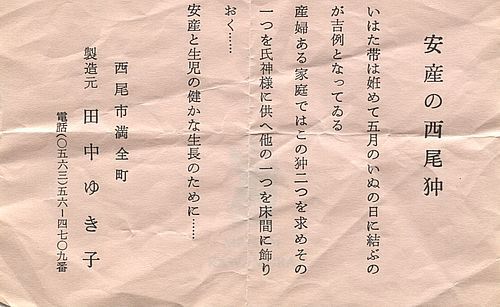 安産の西尾𤝛
いはた帯は姙めて五月のいぬの日に結ぶの
が吉例となってゐる
産婦ある家庭ではこの𤝛二つを求めその
一つを氏神様に供へ他の一つを床間に飾り
おく……
安産と生児の健かな生長のために……
西尾市満全町
製造元 田中ゆき子
電話(〇五六三)五六ー四七〇九番